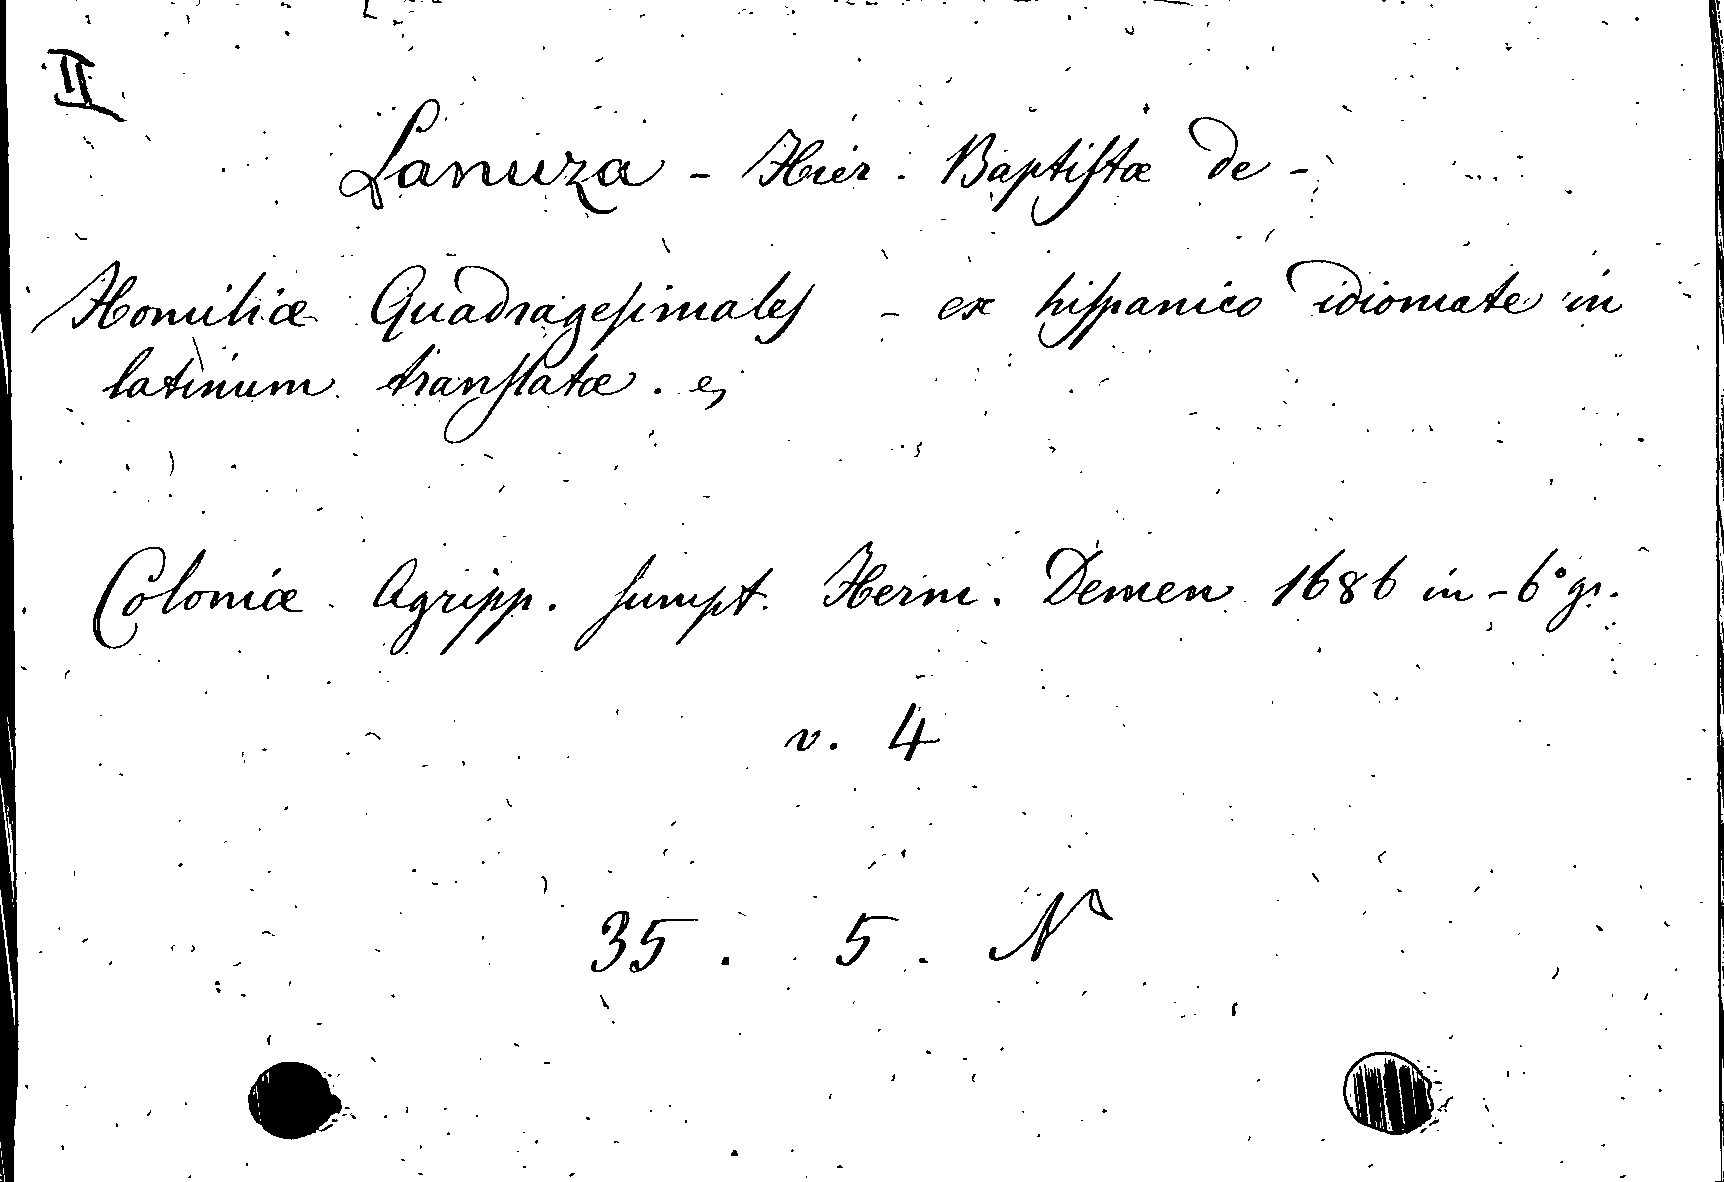 II
Lanuza - Hier. Baptistæ de -
Homiliæ Quadragesimales - ex hispanico idiomate in
latinum translatæ. &
Coloniæ Agripp. sumpt. Herm. Demen 1686 in-6° gr.
v. 4
35. 5. N